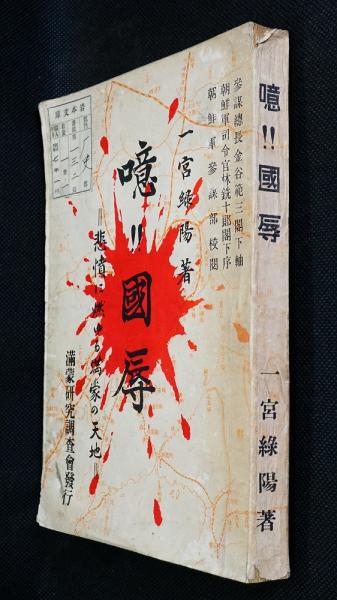 參謀總長金谷範三閣下軸
朝鮮軍司令官林銑十郎閣下序
朝鮮軍參謀部校閲
一宮綠陽著
噫!!國辱
=悲憤に燃ゆる滿蒙の天地=
滿蒙研究調査會發行
岩本文庫
噫!!國辱
一宮綠陽著